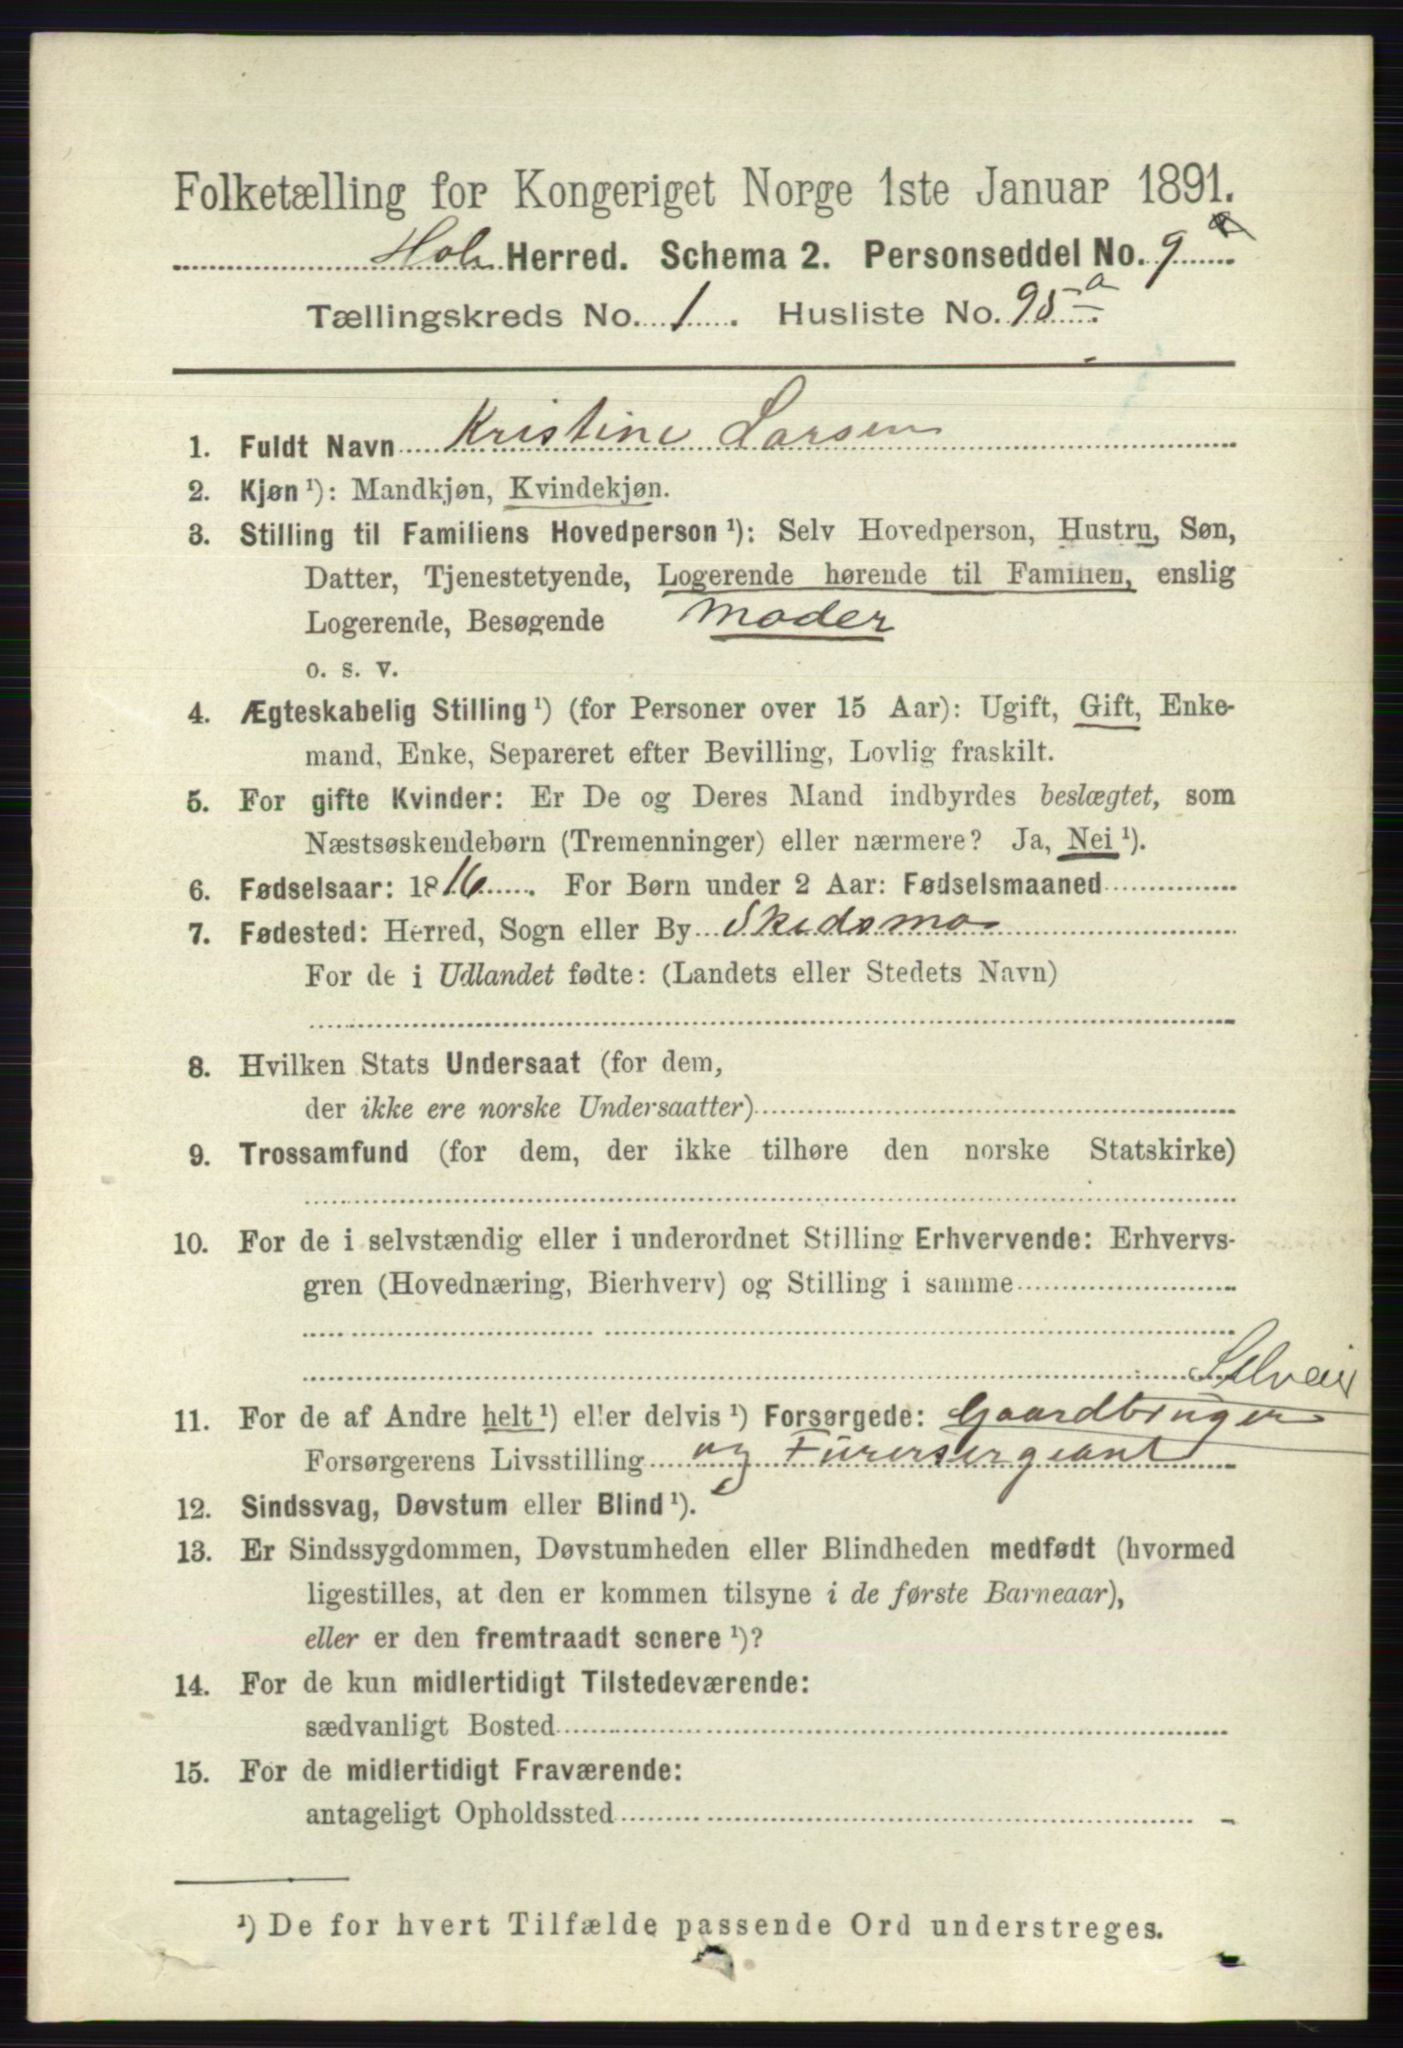 Folketælling for Kongeriget Norge 1ste Januar 1891.
Hole Herred. Schema 2. Personseddel No. 9
Tællingskreds No. 1. Husliste No. 95 a.
1. Fuldt Navn Kristine Larsen
2. Kjøn ¹): Mandkjøn, Kvindekjøn.
3. Stilling til Familiens Hovedperson ¹): Selv Hovedperson, Hustru, Søn,
Datter, Tjenestetyende, Logerende hørende til Familien, enslig
Logerende, Besøgende Moder
o. s. v.
4. Ægteskabelig Stilling ¹) (for Personer over 15 Aar): Ugift, Gift, Enke-
mand, Enke, Separeret efter Bevilling, Lovlig fraskilt.
5. For gifte Kvinder: Er De og Deres Mand indbyrdes beslægtet, som
Næstsøskendebørn (Tremenninger) eller nærmere? Ja, Nei ¹).
6. Fødselsaar: 1816. For Børn under 2 Aar: Fødselsmaaned
7. Fødested: Herred, Sogn eller By Skedsmo
For de i Udlandet fødte: (Landets eller Stedets Navn)
8. Hvilken Stats Undersaat (for dem,
der ikke ere norske Undersaatter)
9. Trossamfund (for dem, der ikke tilhøre den norske Statskirke)
10. For de i selvstændig eller i underordnet Stilling Erhvervende: Erhvervs-
gren (Hovednæring, Bierhverv) og Stilling i samme
Selveier
11. For de af Andre helt ¹) eller delvis ¹) Forsørgede: Gaardbruger
Forsørgerens Livsstilling og Furersergeant
12. Sindssvag, Døvstum eller Blind ¹).
13. Er Sindssygdommen, Døvstumheden eller Blindheden medfødt (hvormed
ligestilles, at den er kommen tilsyne i de første Barneaar),
eller er den fremtraadt senere ¹)?
14. For de kun midlertidigt Tilstedeværende:
sædvanligt Bosted
15. For de midlertidigt Fraværende:
antageligt Opholdssted
¹) De for hvert Tilfælde passende Ord understreges.